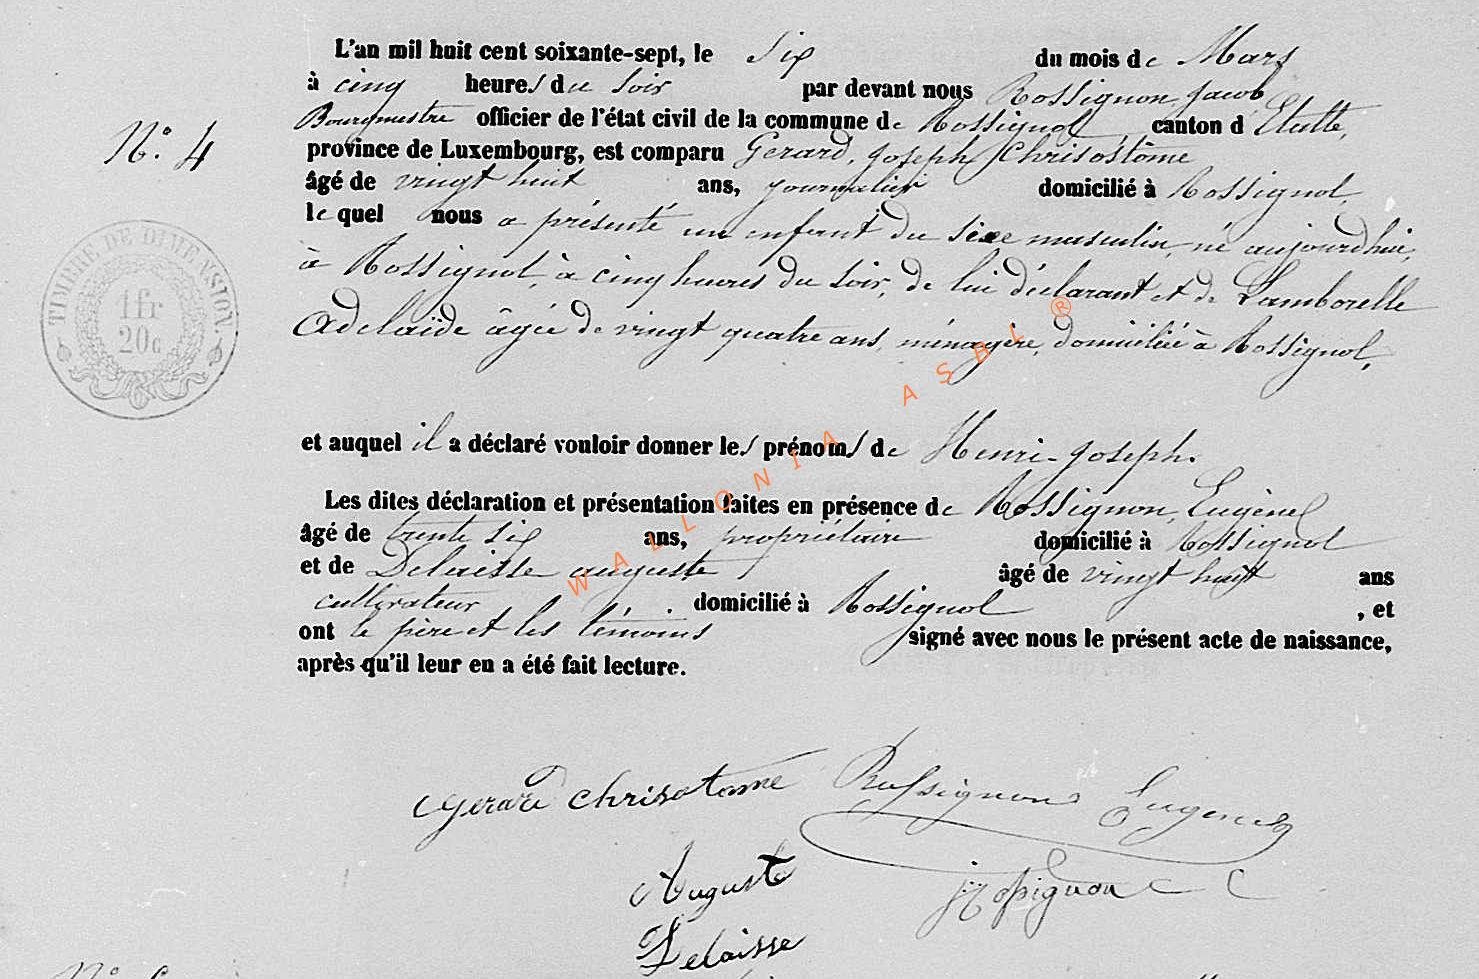 L'an mil huit cent soixante-sept, le Six du mois de Mars
à cinq heures du Soir par devant nous Rossignon, Jacob
Bourgmestre officier de l'état civil de la commune de Rossignol, canton d'Etalle,
province de Luxembourg, est comparu Gerard, Joseph Chrisostôme
N.º 4
âgé de vingt huit ans, journalier domicilié à Rossignol,
le quel nous a présenté un enfant du Sexe masculin, né aujourd'hui,
à Rossignol, à cinq heures du Soir, de lui déclarant et de Lamborelle
Adelaïde âgée de vingt quatre ans, ménagère, domiciliée à Rossignol,
TIMBRE DE DIMENSION.
1fr
20c
et auquel il a déclaré vouloir donner les prénoms de Henri-Joseph.
Les dites déclaration et présentation faites en présence de Rossignon, Eugène
âgé de trente six ans, propriétaire domicilié à Rossignol
et de Delaisse auguste âgé de vingt huit ans
cultivateur domicilié à Rossignol, et
ont le père et les témoins signé avec nous le présent acte de naissance,
après qu'il leur en a été fait lecture.
WALLONIA ASBL ®
Gerard Chrisotome Rossignon Eugene
Auguste J Rossignon
Delaisse